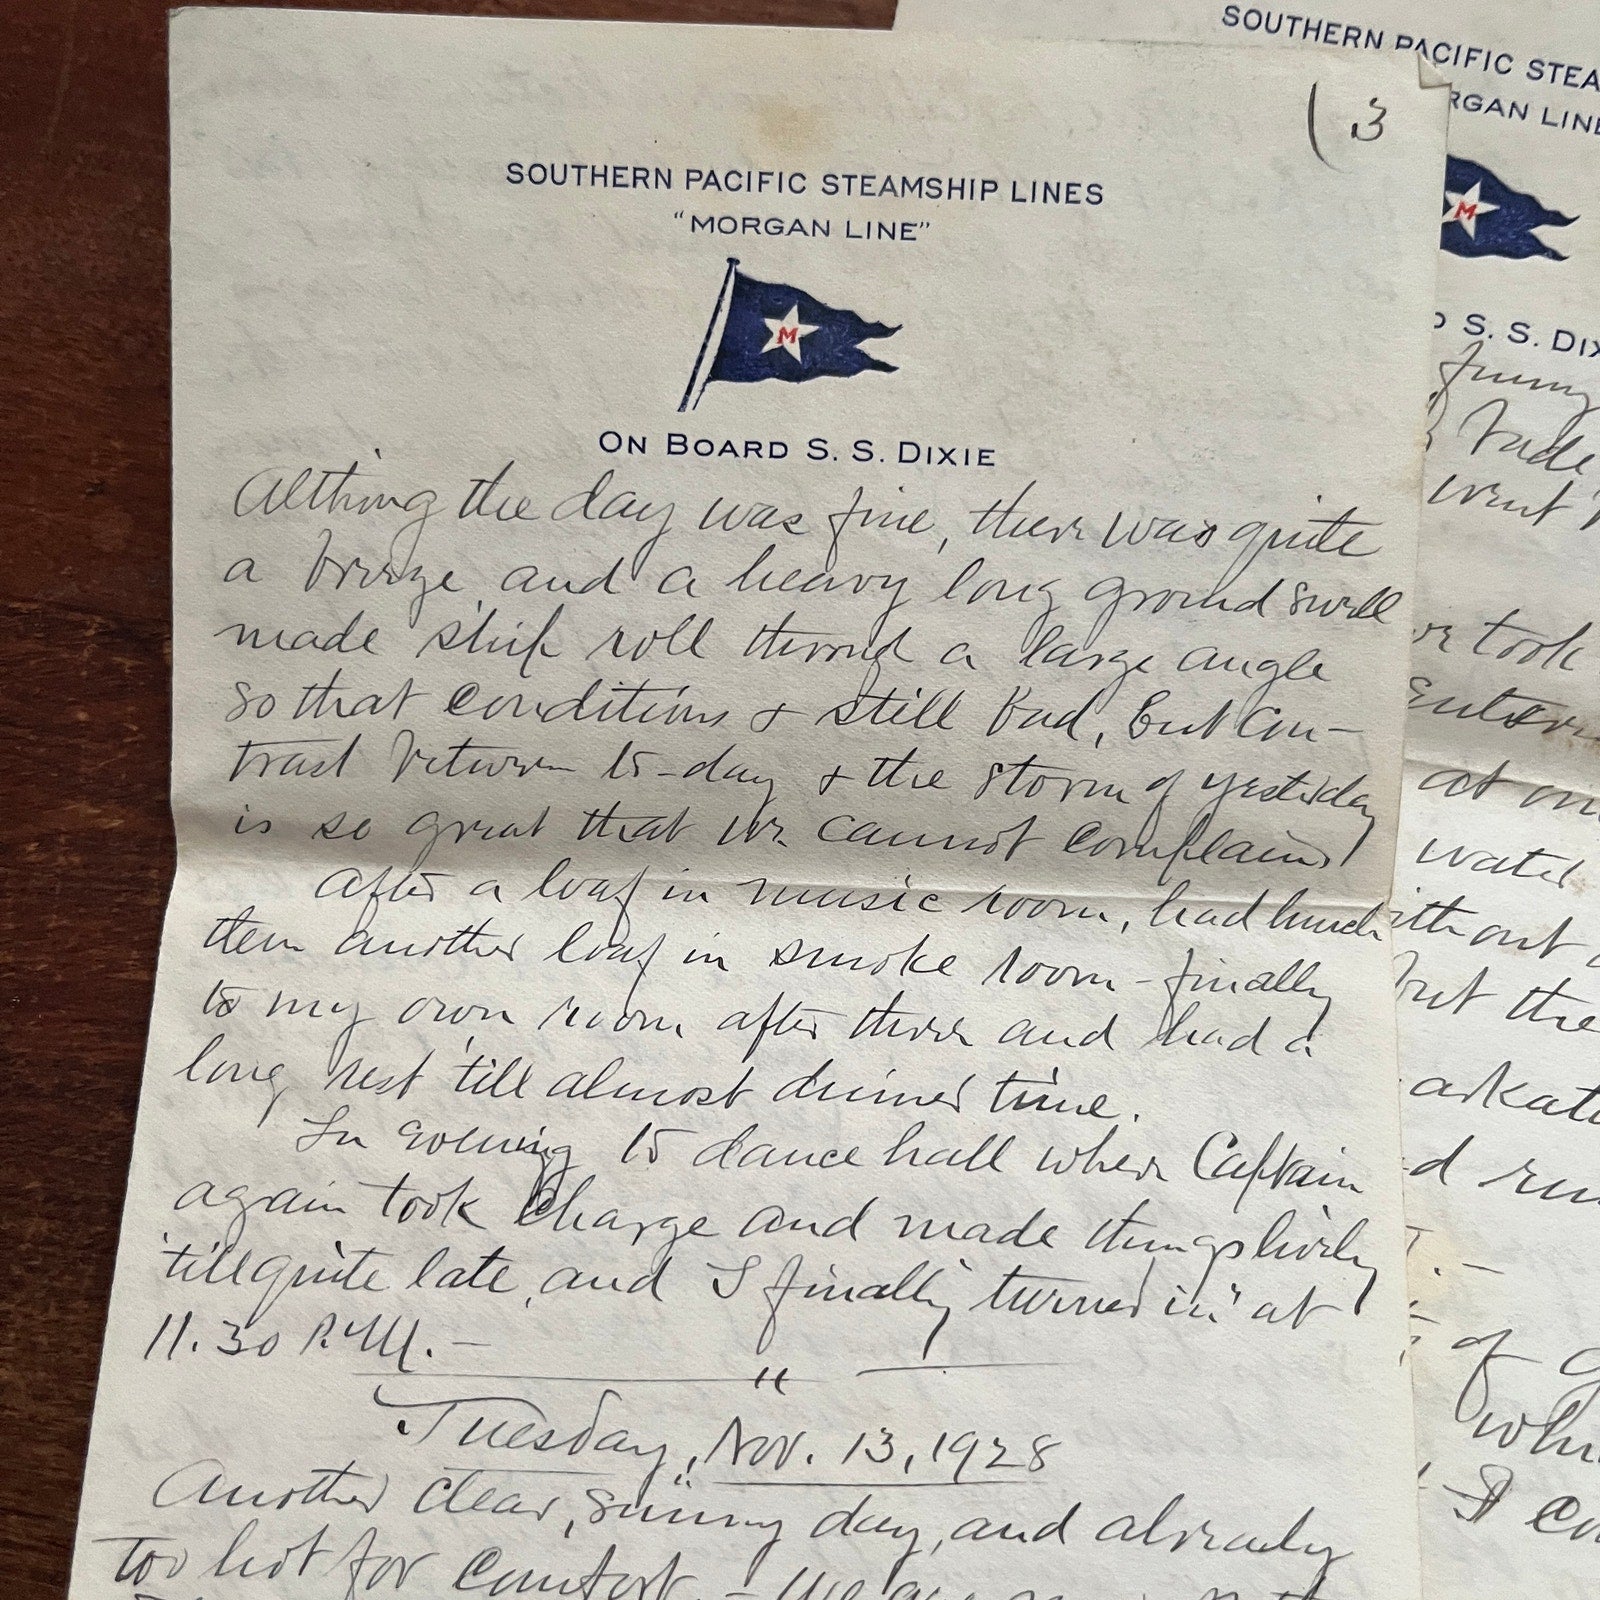 ( 3
SOUTHERN PACIFIC STEAMSHIP LINES
"MORGAN LINE"
M
ON BOARD S. S. DIXIE
Althoug the day was fine, there was quite
a breeze and a heavy long ground swell
made ship roll through a large angle
so that conditions & still bad, but con-
trast between to-day & the storm of yesterday
is so great that we cannot complain
After a loaf in music room, had lunch
then another loaf in smoke room - finally
to my own room after three and had a
long rest 'till almost dinner time.
In evening to dance hall where Captain
again took charge and made things lively
'till quite late, and I finally "turned in" at
11.30 P.M. —
"
Tuesday, Nov. 13, 1928
Another clear, sunny day, and already
too hot for comfort. - We are
SOUTHERN PACIFIC STEA
RGAN LINE
M
D S. S. DIX
went
took
at
water
ithout
but the
d
of
whi
I